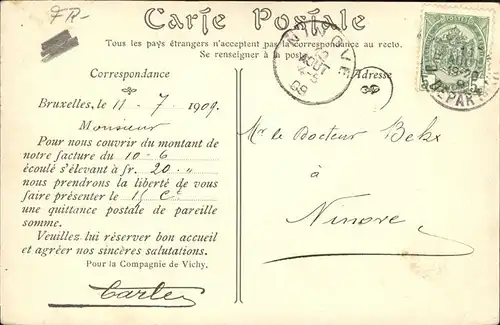 FR-
Carte Postale
Tous les pays étrangers n'acceptent pas la correspondance au recto.
Se renseigner à la poste.
Correspondance
Adresse
NINOVE
AOUT
09
DEPART
Bruxelles, le 11 - 7 - 1909.
Monsieur
Pour nous couvrir du montant de
notre facture du 10 - 6
écoulé s'élevant à fr. 20 "
nous prendrons la liberté de vous
faire présenter le 15 Ct
une quittance postale de pareille
somme.
Veuillez lui réserver bon accueil
et agréer nos sincères salutations.
Pour la Compagnie de Vichy.
Mr le Docteur
à
Ninove